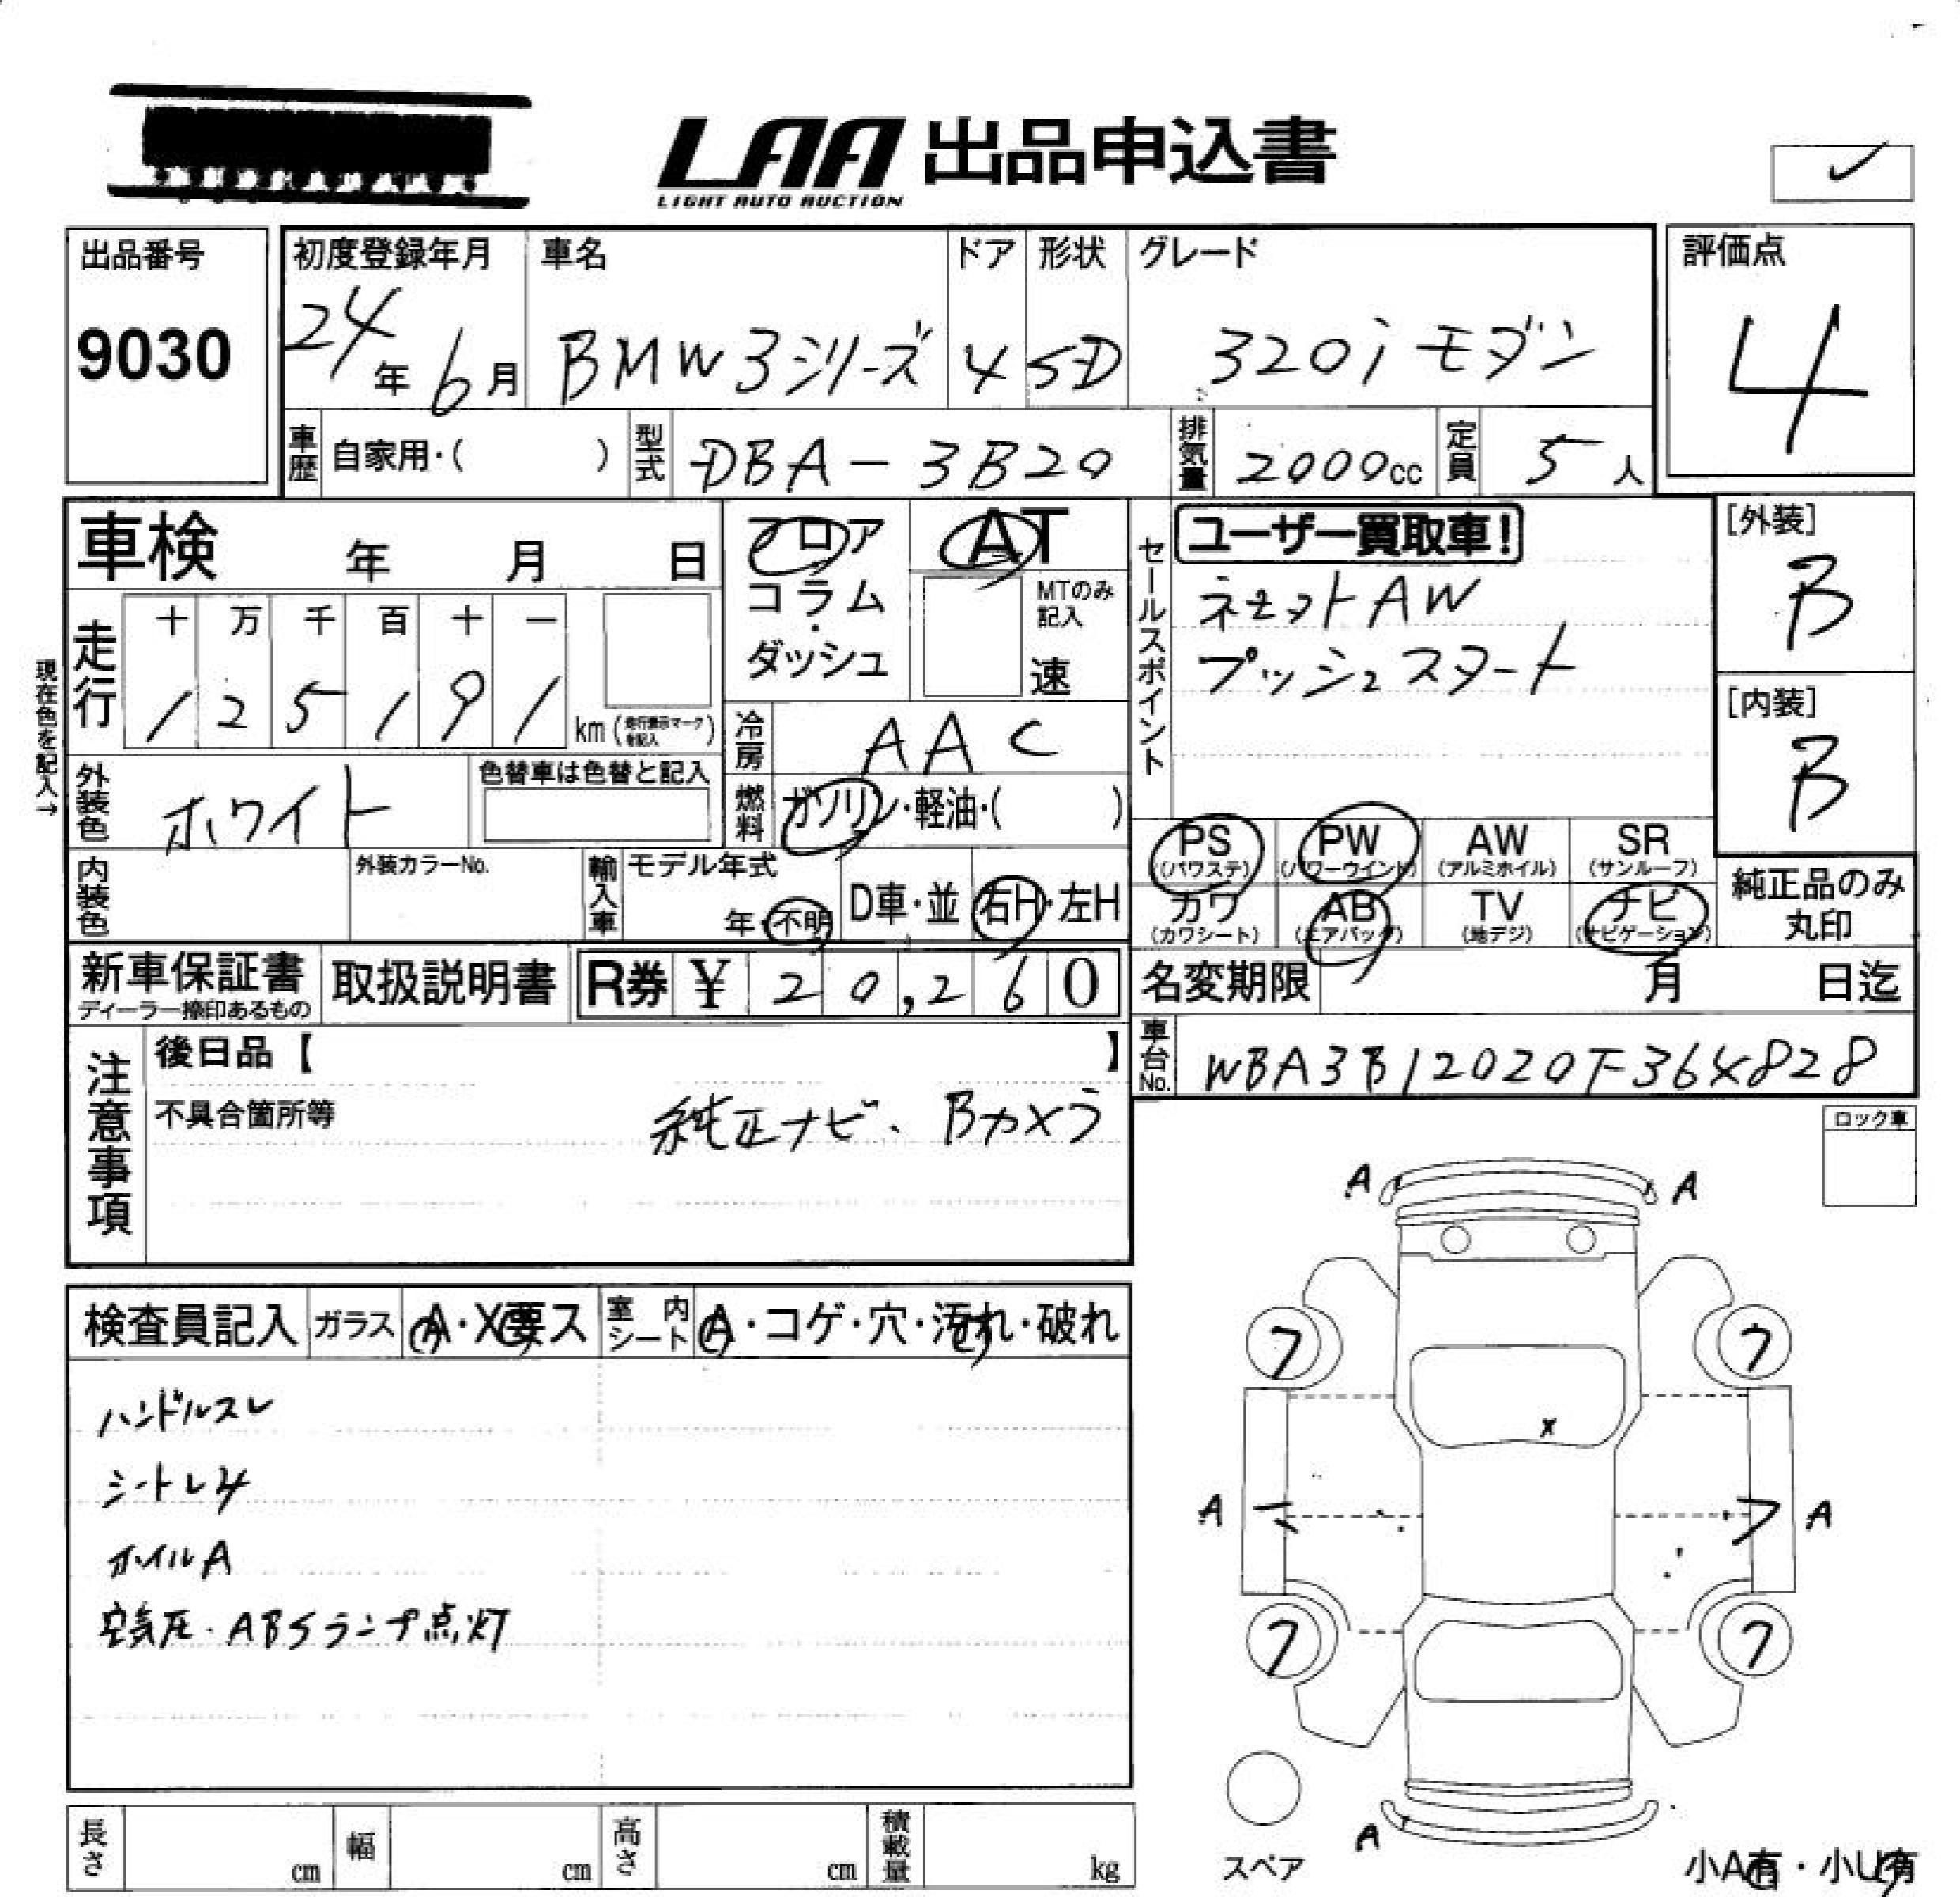 LAA 出品申込書
LIGHT AUTO AUCTION
出品番号
9030
初度登録年月
24年 6月
車名
BMW 3シリーズ
ドア
4
形状
SD
グレード
320i モダン
評価点
4
車歴 自家用・( )
型式 DBA-3B20
排気量 2000cc
定員 5人
車検 年 月 日
フロア
コラム
・
ダッシュ
AT
MTのみ記入
速
セールスポイント
ユーザー買取車!
ネェットAW
プッシュスタート
[外装]
B
[内装]
B
現在色を記入→
走行
十 万 千 百 十 一
1 2 5 1 9 1 km (走行表示マークを記入)
冷房 AAC
外装色 ホワイト
色替車は色替と記入
燃料 ガソリン・軽油・( )
PS (パワステ)
PW (パワーウインド)
AW (アルミホイル)
SR (サンルーフ)
カワ (カワシート)
AB (エアバッグ)
TV (地デジ)
ナビ (ナビゲーション)
純正品のみ丸印
内装色
外装カラーNo.
輸入車
モデル年式
年・不明
D車・並
右H・左H
新車保証書
ディーラー捺印あるもの
取扱説明書
R券 ¥ 20,260
名変期限 月 日迄
車台No. WBA3B12020F364828
注意事項
後日品【 】
不具合箇所等
純正ナビ、Bカメラ
ロック車
A A
検査員記入
ガラス A・X要ス
室内シート A・コゲ・穴・汚れ・破れ
ハンドルスレ
シートレ4
ホイルA
空気圧・ABSランプ点灯
7 7
X
A A
7 7
A
スペア
小A有・小U有
長さ cm
幅 cm
高さ cm
積載量 kg